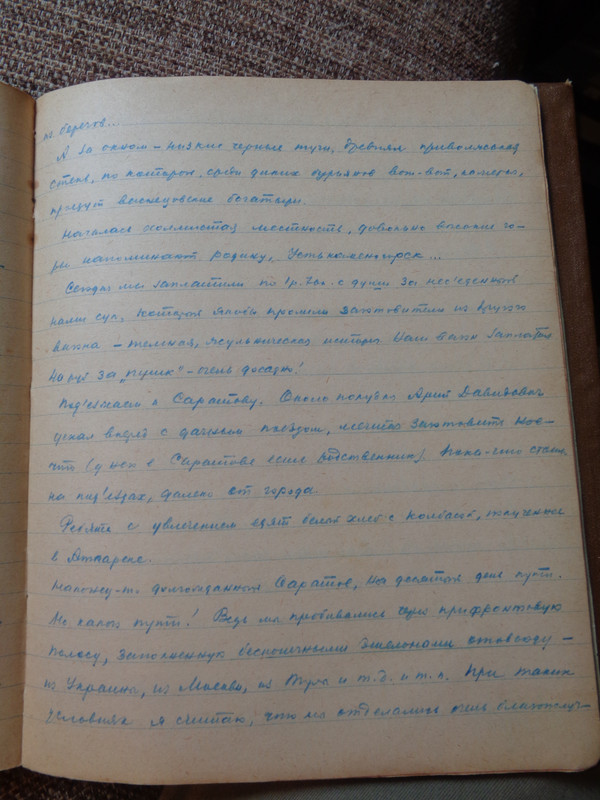 на берегов...
А за окном – низкие черные тучи, древняя приволжская
степь, по которой, среди диких бурьянов вот-вот, кажется,
проедут васнецовские богатыри.
Началась холмистая местность, довольно высокие го-
ры напоминают родину, Устькаменогорск...
Сегодня мы заплатили по 1р.20к. с души за нес'еденный
нами суп, который якобы пролили заготовители из другого
вагона – темная, жульническая история. Наш вагон заплатил
за "пшик" – очень досадно!
Под'езжаем к Саратову. Около полудня Арий Давидович
уехал вперед с дачным поездом, мечтая заготовить кое-
что (у него в Саратове есть родственник). Пока-что стоим
на под'ездах, далеко от города.
Ребята с увлечением едят белый хлеб с колбасой, полученные
в Аткарске.
Наконец-то долгожданный Саратов, на десятый день пути.
Но каков путь! Ведь мы пробивались через прифронтовую
полосу, заполненную бесконечными эшелонами отовсюду –
из Украины, из Москвы, из Тулы и т.д. и т.п. При таких
условиях я считаю, что мы отделались очень благополуч-